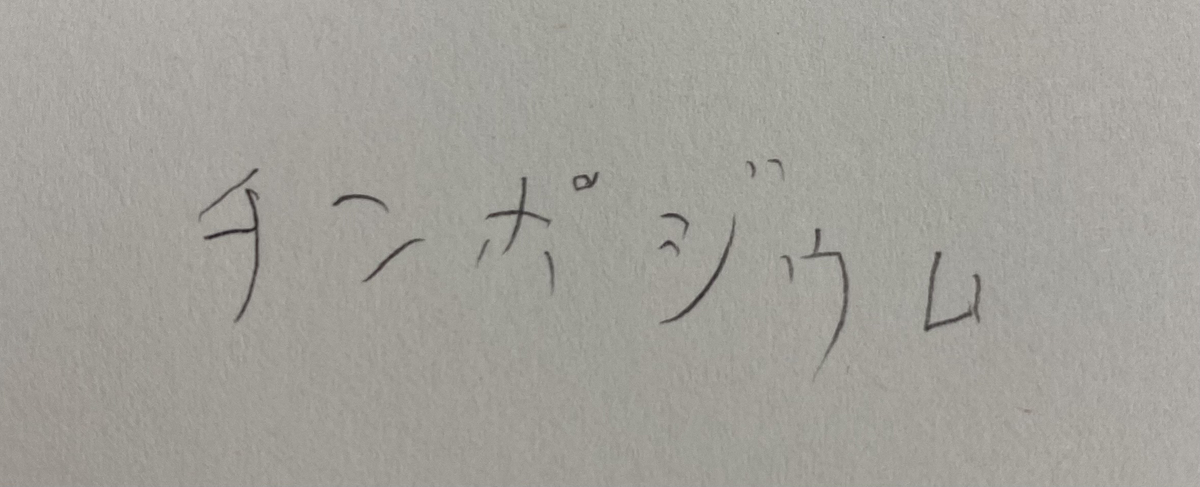 チンポジウム